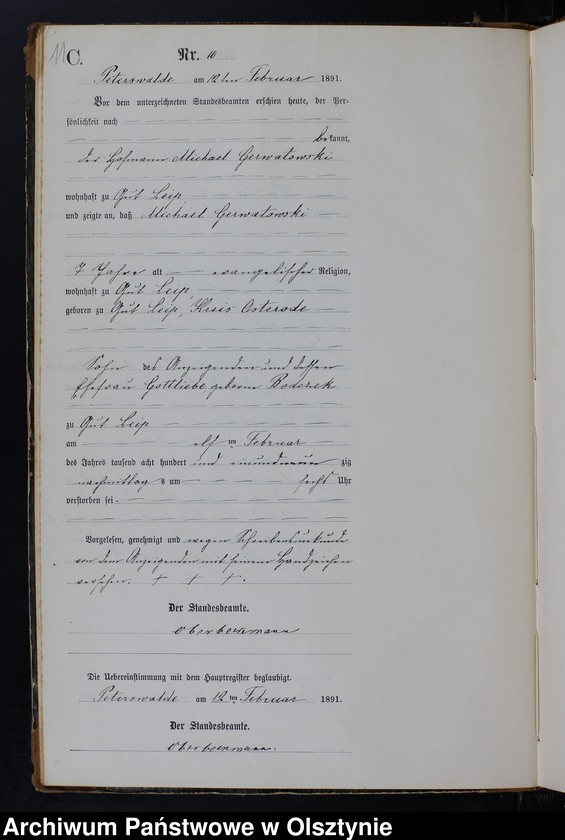 11
C.
Nr. 10
Peterswalde am 12ten Februar 1891.
Vor dem unterzeichneten Standesbeamten erschien heute, der Per-
sönlichkeit nach
bekannt,
der Hofmann Michael Gerwatowski
wohnhaft zu Gut Leip
und zeigte an, daß Michael Gerwatowski
7 Jahre alt evangelischer Religion,
wohnhaft zu Gut Leip,
geboren zu Gut Leip, Kreis Osterode
Sohn des Anzeigenden und dessen
Ehefrau Gottliebe geborne
zu Gut Leip
am elf ten Februar
des Jahres tausend acht hundert und einundneun zig
nachmittags um sechs Uhr
verstorben sei.
Vorgelesen, genehmigt und wegen Schreibensunkunde
von dem Anzeigenden mit seinem Handzeichen
versehen. + + +.
Der Standesbeamte.
Die Uebereinstimmung mit dem Hauptregister beglaubigt.
Peterswalde am 12ten Februar 1891.
Der Standesbeamte.
Archiwum Państwowe w Olsztynie